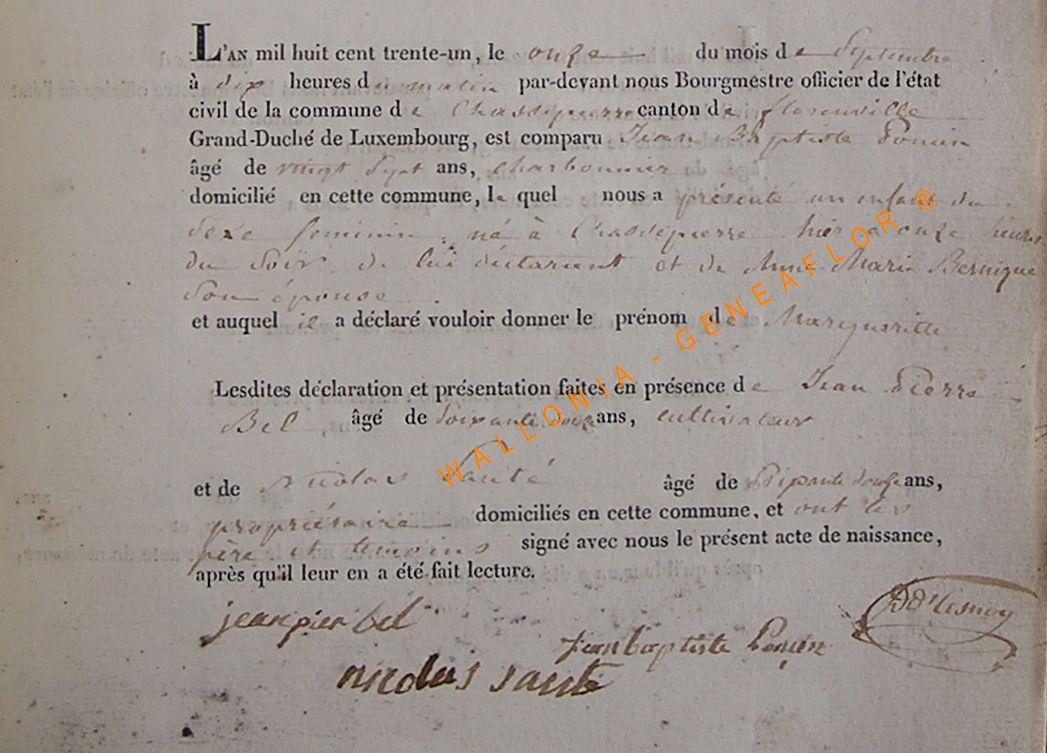 L'AN mil huit cent trente-un, le onze du mois de Septembre
à dix heures du matin par-devant nous Bourgmestre officier de l'état
civil de la commune de Chassepierre canton de florenville
Grand-Duché de Luxembourg, est comparu Jean Baptiste
âgé de vingt Sept ans, charbonnier
domicilié en cette commune, le quel nous a présenté un enfant du
Sexe feminin, né à Chassepierre hier a onze heures
du Soir, de lui déclarant et de Anne Marie Bernique
Son épouse.
et auquel il a déclaré vouloir donner le prénom de Margueritte
Lesdites déclaration et présentation faites en présence de Jean Pierre
Bel, âgé de Soixante ans, cultivateur
et de Nicolas Sauté âgé de Soixante douze ans,
propriétaire domiciliés en cette commune, et ont les
père et temoins signé avec nous le présent acte de naissance,
après qu'il leur en a été fait lecture.
jean pier bel
Jean baptiste
nicolas saute
WALLONIA - GENEAFLOR ®